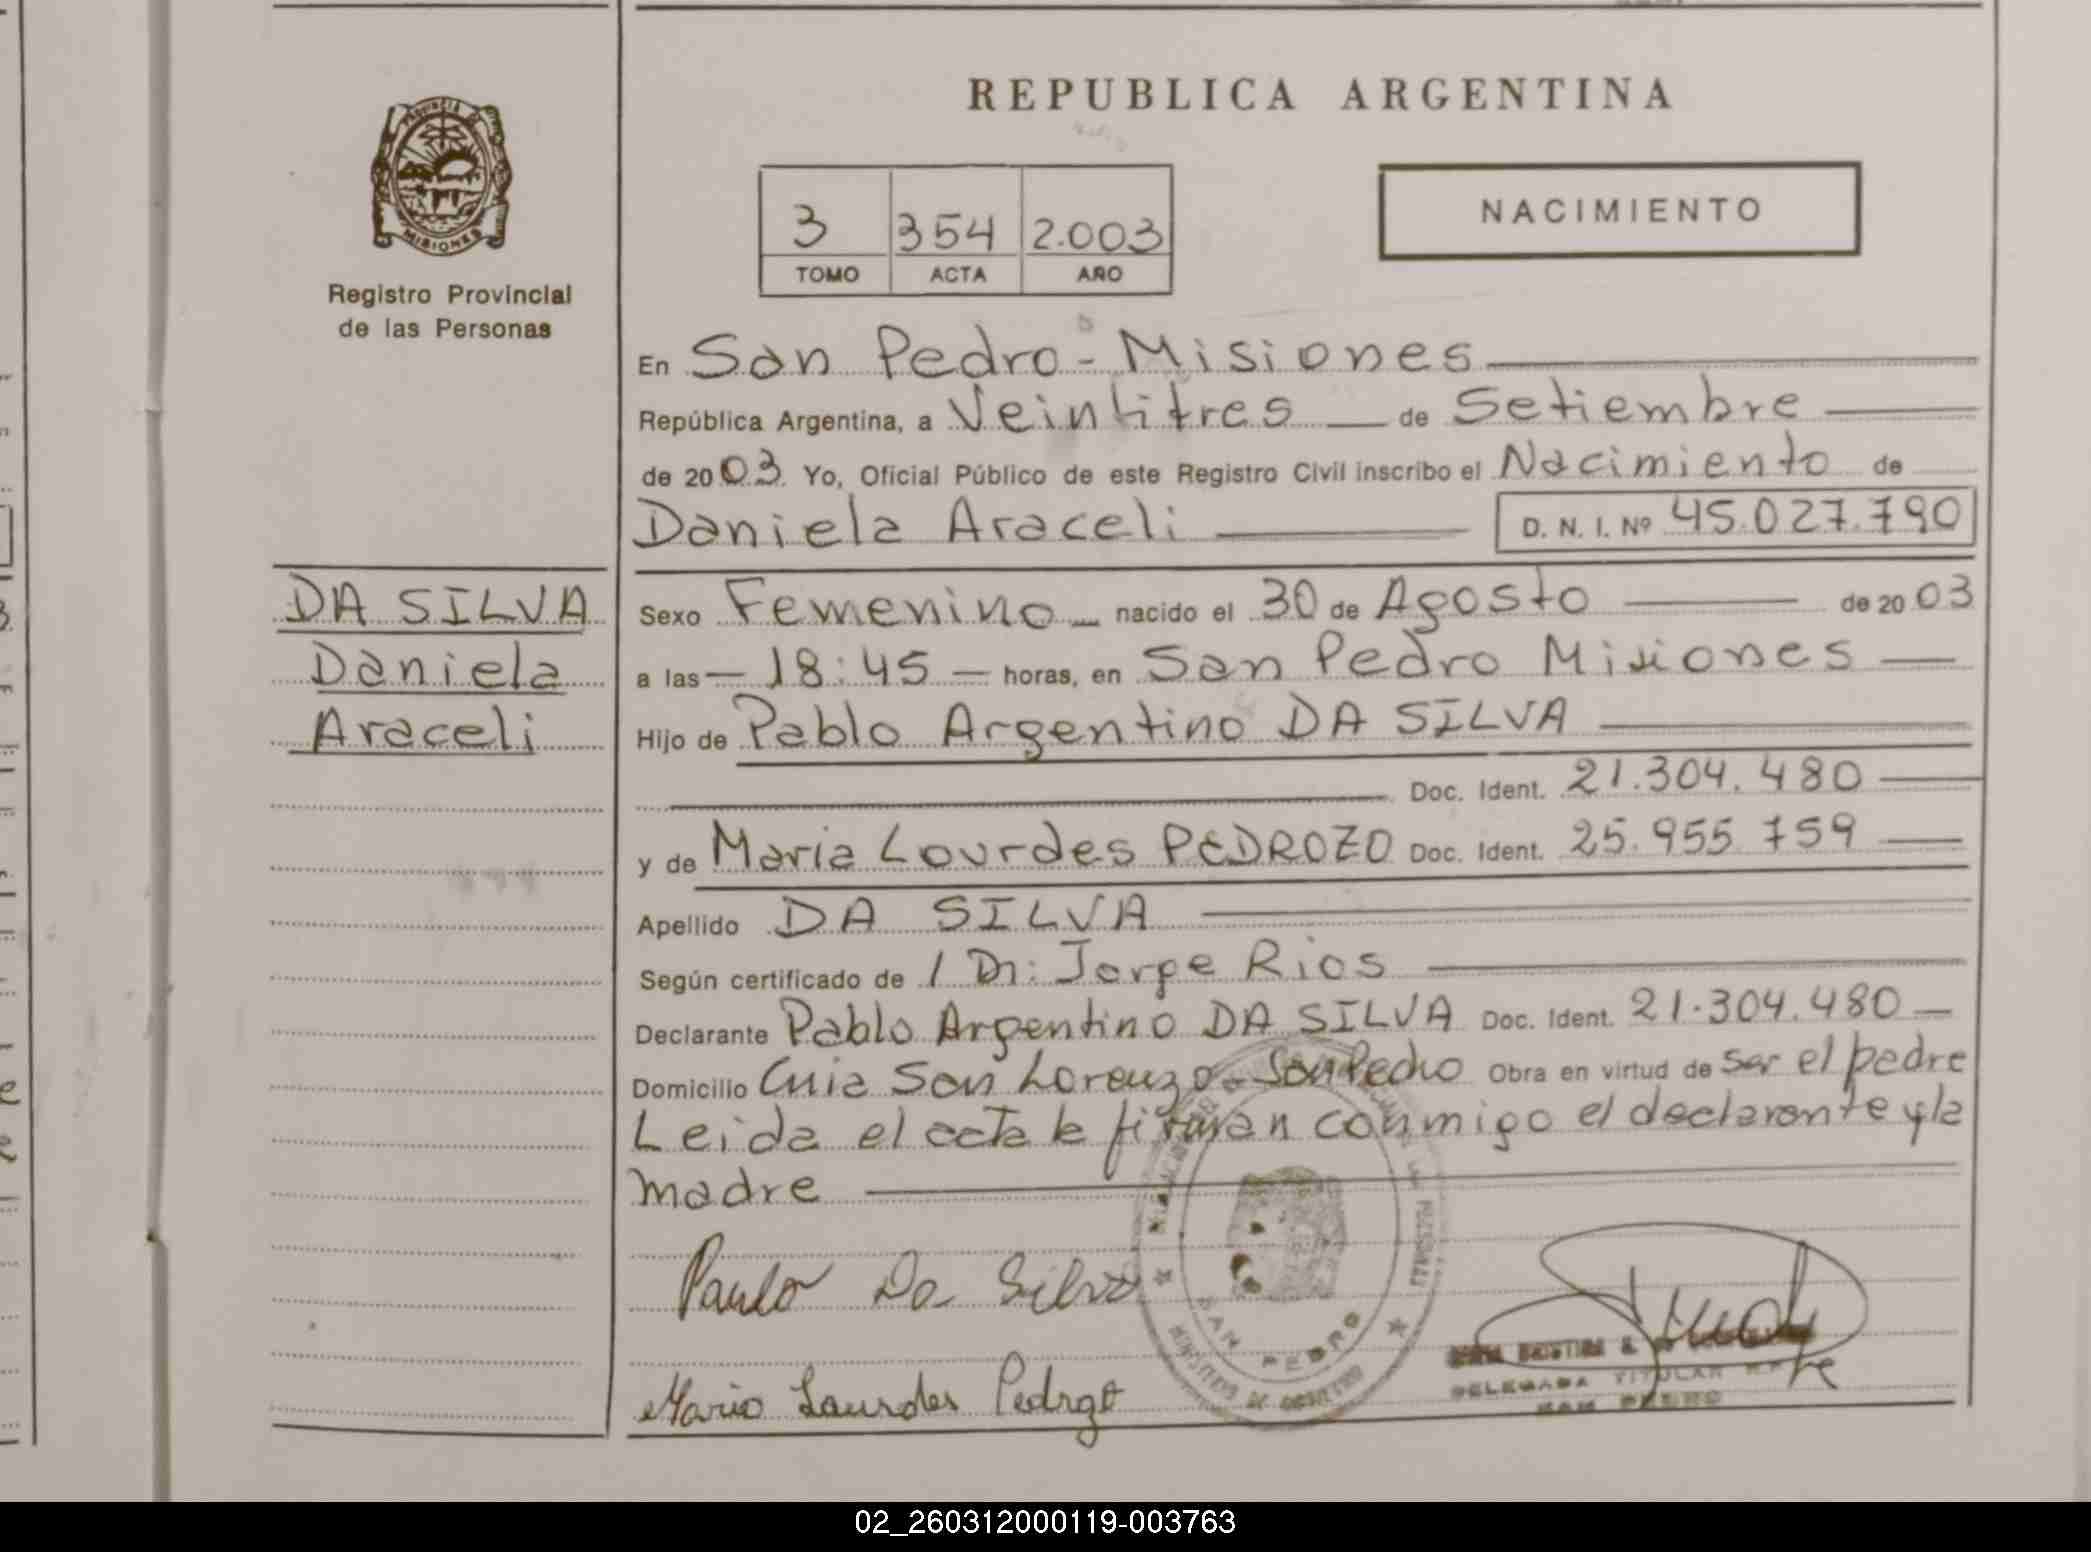 REPUBLICA ARGENTINA
PROVINCIA DE
MISIONES
Registro Provincial
de las Personas
3 354 2.003
TOMO ACTA AÑO
NACIMIENTO
En San Pedro - Misiones
República Argentina, a Veintitres de Setiembre
de 2003. Yo, Oficial Público de este Registro Civil inscribo el Nacimiento de
Daniela Araceli D. N. I. Nº 45.027.790
DA SILVA
Daniela
Araceli
Sexo Femenino nacido el 30 de Agosto de 2003
a las - 18:45 - horas, en San Pedro Misiones
Hijo de Pablo Argentino DA SILVA
Doc. Ident. 21.304.480
y de Maria Lourdes PEDROZO Doc. Ident. 25.955.759
Apellido DA SILVA
Según certificado de / Dr: Jorge Rios
Declarante Pablo Argentino DA SILVA Doc. Ident. 21.304.480
Domicilio San Lorenzo - San Pedro Obra en virtud de ser el padre
Leida el acta la firman conmigo el declarante y la
madre
Da Silva
Maria Lourdes Pedrozo
SAN PEDRO
MINISTERIO DE GOBIERNO
DELEGADA TITULAR
SAN PEDRO
02_260312000119-003763